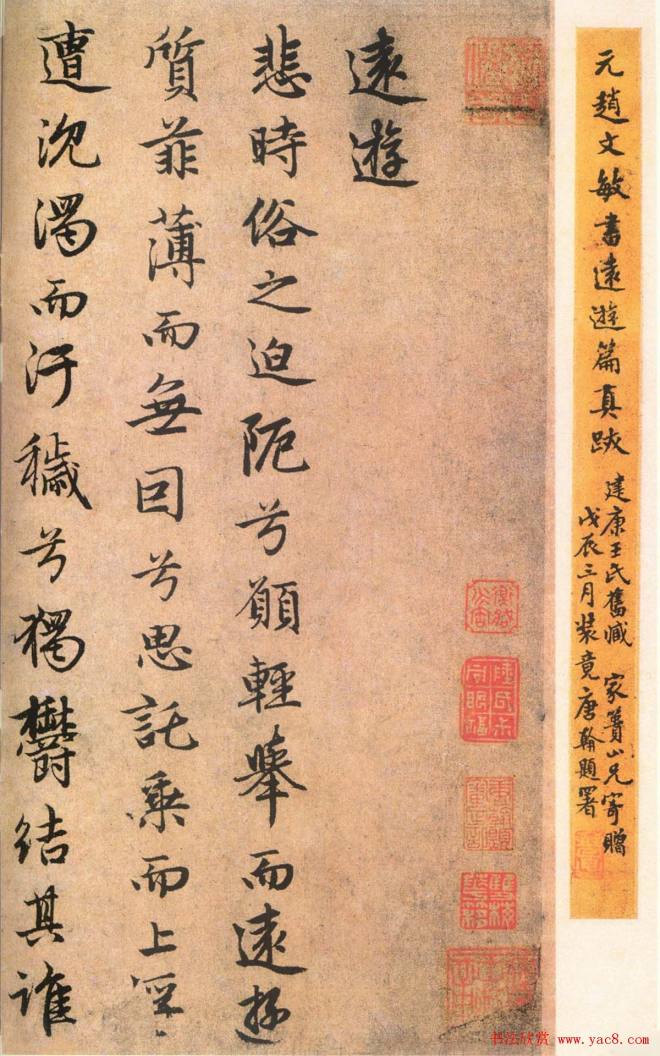 元趙文敏書遠遊篇真跡
建康王氏舊藏 家山兄寄贈
戊辰三月裝竟唐翰題署
遠遊
悲時俗之迫阨兮願輕舉而遠遊
質菲薄而無因兮思託乘而上浮
遭沈濁而汙穢兮獨鬱結其誰
书法欣赏 www.yac8.com